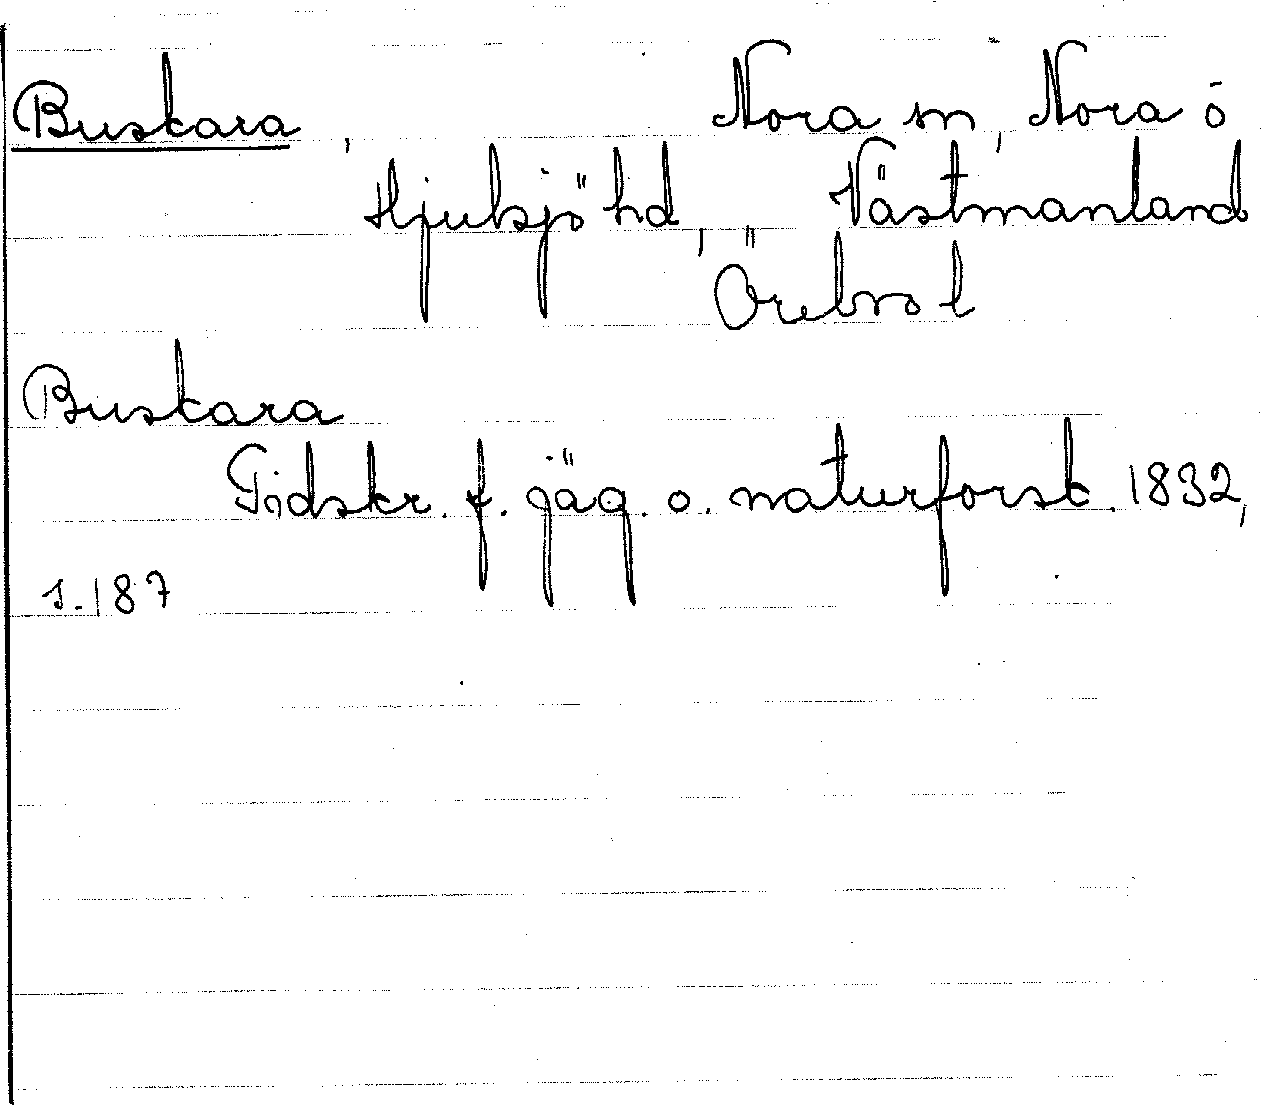 Buskara, Nora sn, Nora ö
Hjulsjö hd, Västmanland
Örebro l
Buskara
Tidskr. f. jäg. o. naturforsk. 1832,
s. 187